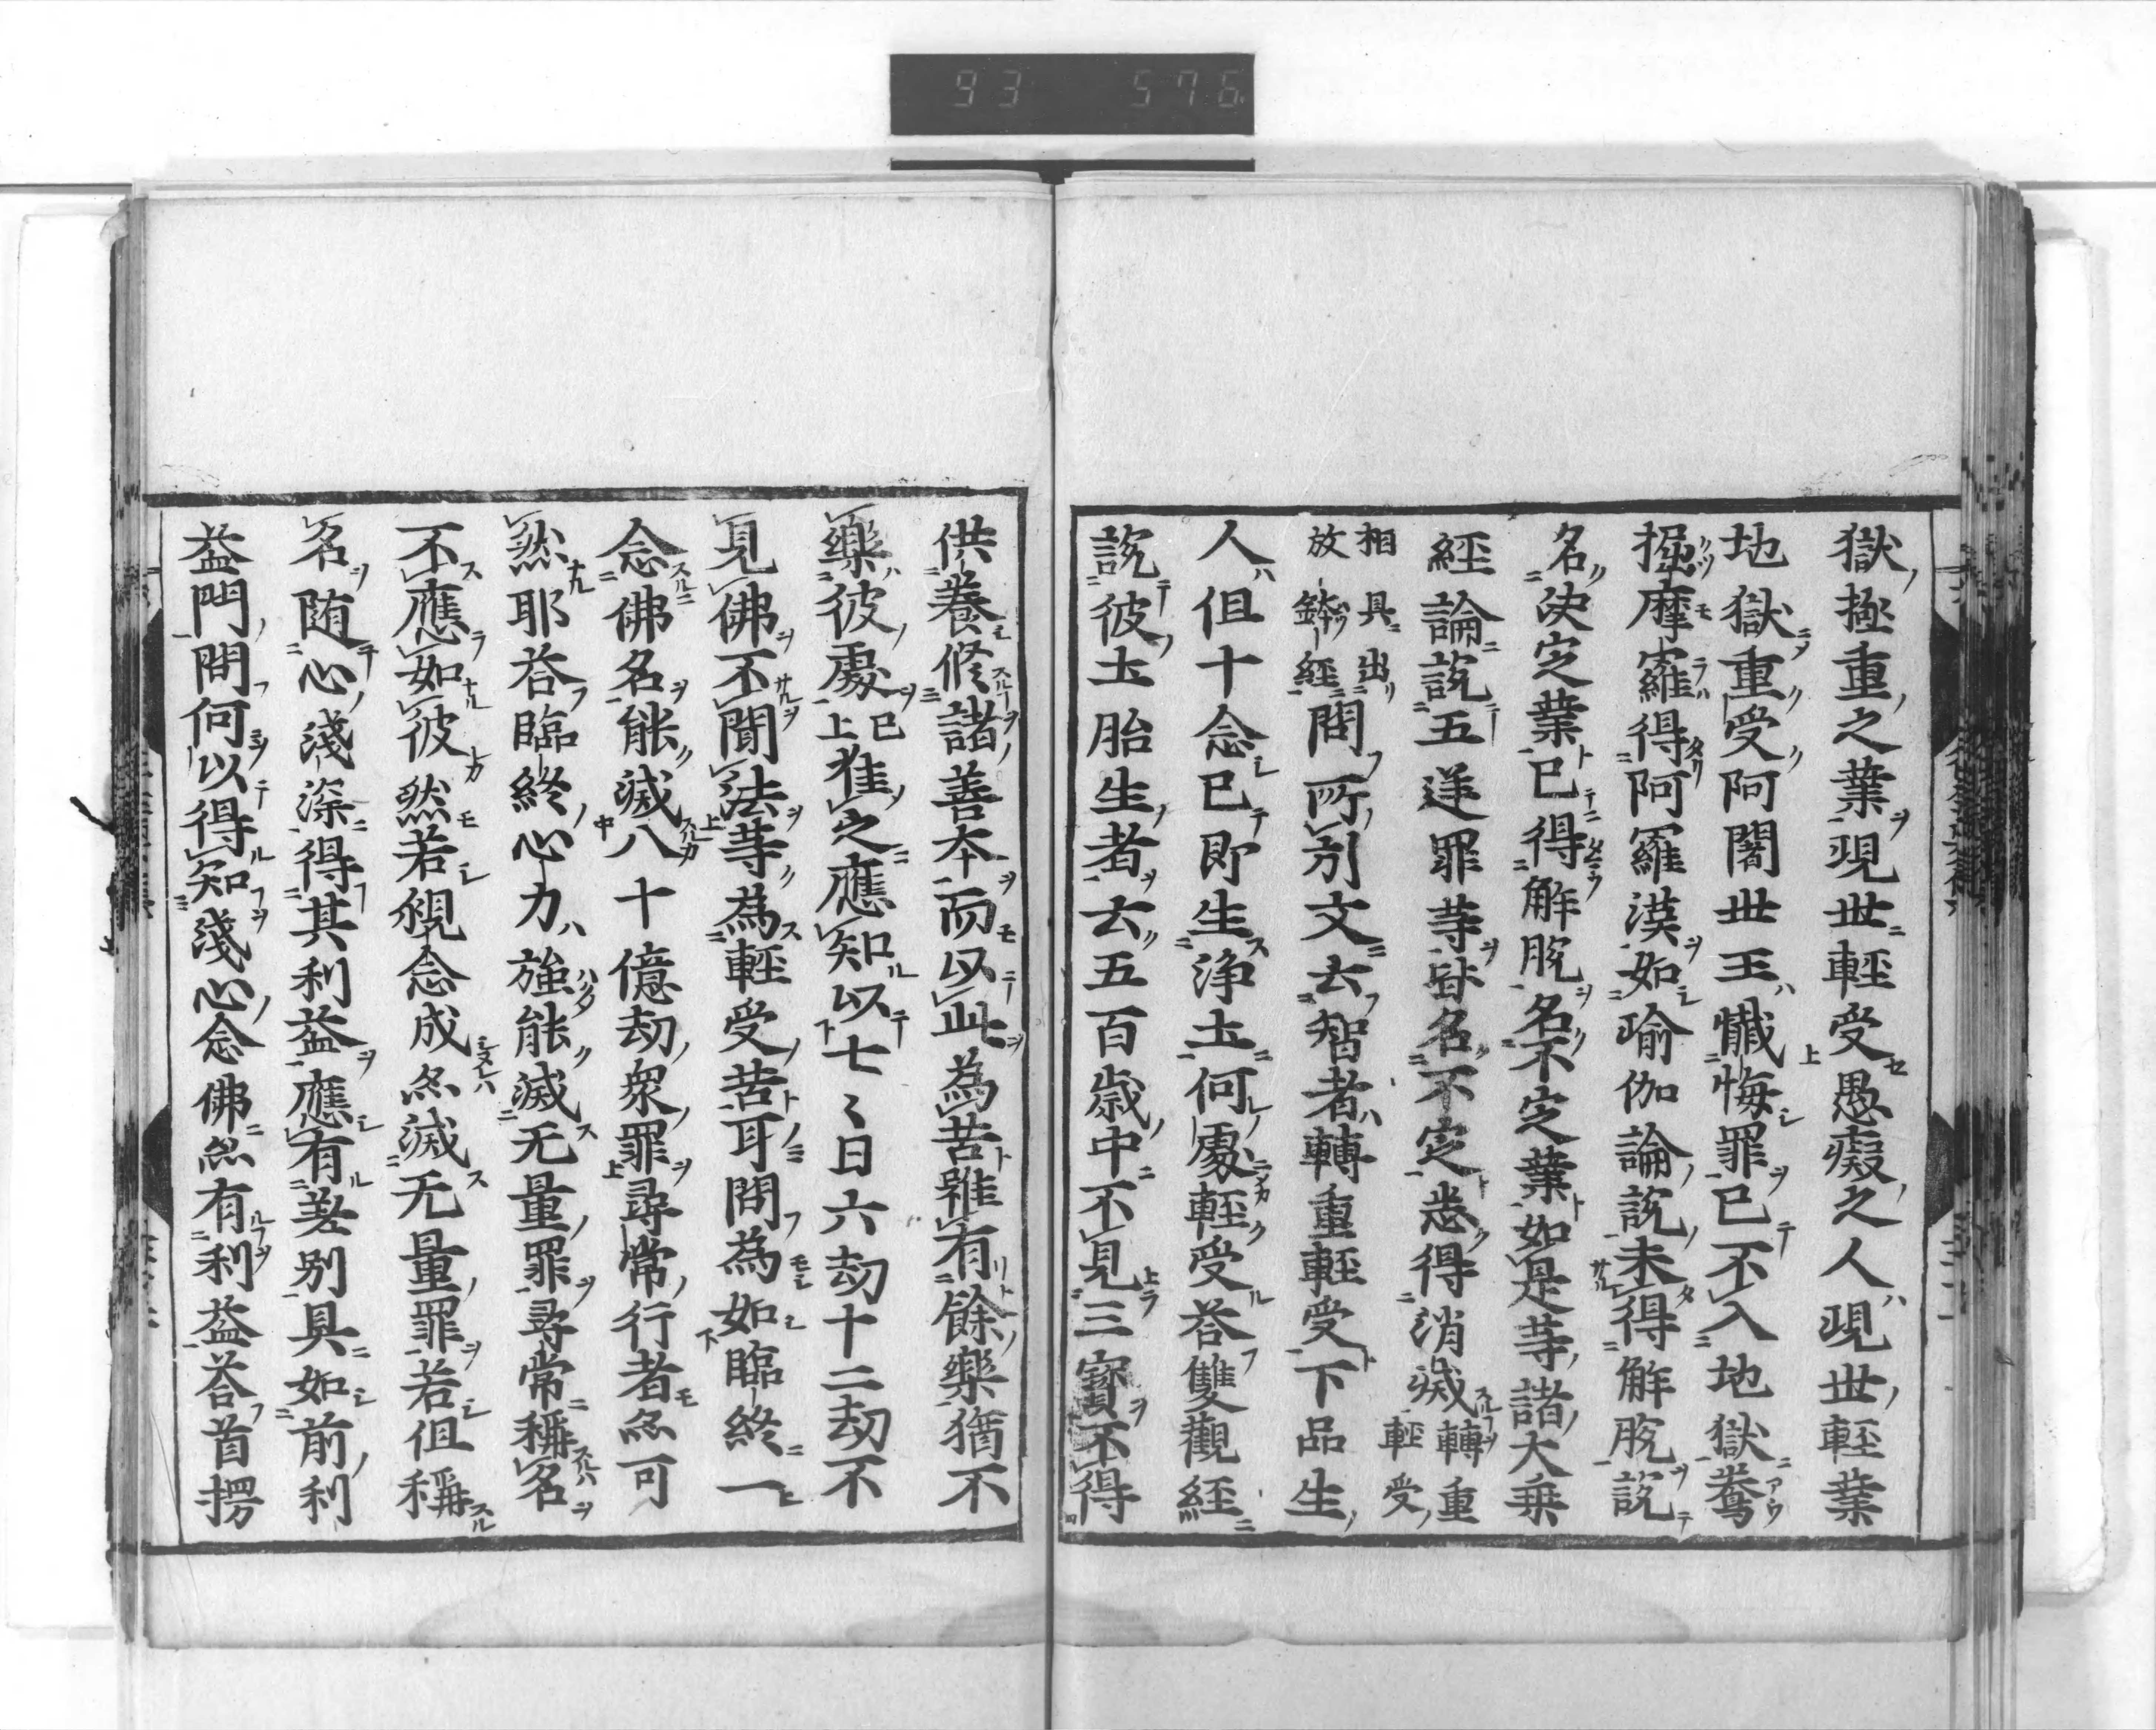 93 576
獄極重之業現世輕受愚癡之人現世輕業
地獄重受阿闍世王懺悔罪已不入地獄鴦
掘摩羅得阿羅漢如瑜伽論說未得解脫說
名決定業已得解脫名不定業如是等諸大乗
経論說五逆罪等皆名不定悉得消滅轉重輕受
相具出放鉢経問所引別文云智者轉重輕受下品生
人但十念已即生浄土何處輕受荅雙觀経
說彼土胎生者云五百歳中不見三寳不得
供養修諸善本而以此為苦雖有餘樂猶不
樂彼處已上准之應知以七〻日六劫十二劫不
見佛不聞法等為輕受苦耳問為如臨終一
念佛名能滅八十億劫衆罪尋常行者亦可
然耶荅臨終心力強能滅无量罪尋常稱名
不應如彼然若観念成亦滅无量罪若但稱
名随心淺深得其利益應有差別具如前利
益門問何以得知淺心念佛亦有利益荅首楞